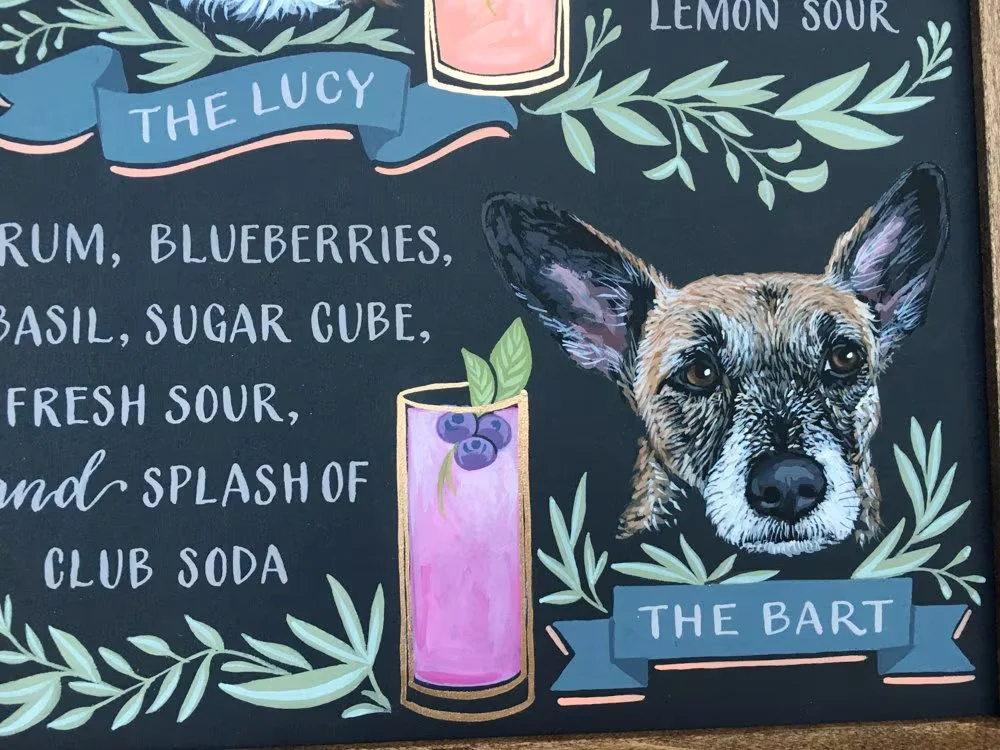 LEMON SOUR
THE LUCY
RUM, BLUEBERRIES,
BASIL, SUGAR CUBE,
FRESH SOUR,
and SPLASH OF
CLUB SODA
THE BART